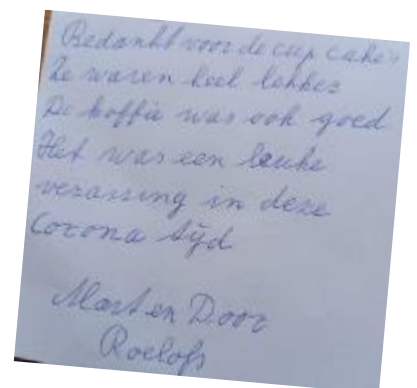 Bedankt voor de cup cake's
Ze waren heel lekker
De koffie was ook goed
Het was een leuke
verassing in deze
Corona tijd
Mart en Door
Roelofs